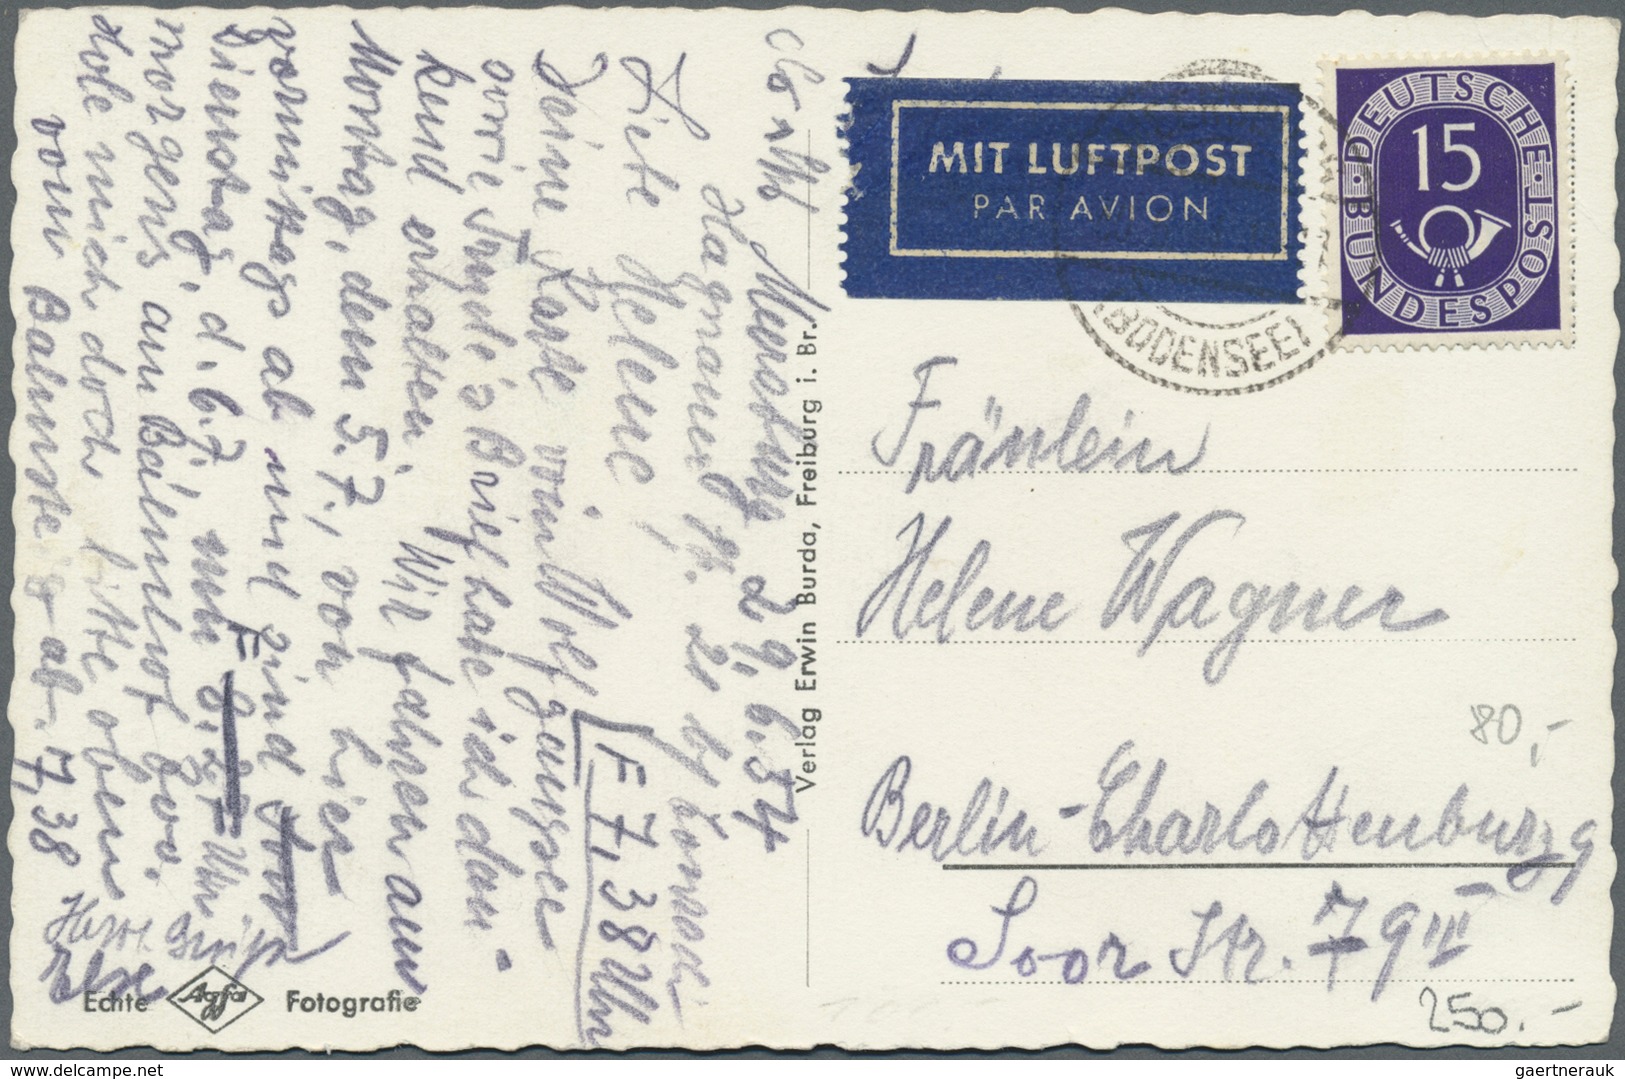 Meersburg 29.6.54
Hagnau
Liebe Helene!
Deine Karte
sowie Brief habe ich dan-
kend erhalten. Wir fahren am
Montag, dem 5.7., von hier
vormittags ab und sind
Dienstag, d. 6.7. um Uhr
morgens am Bahnhof Zoo.
Hole mich doch bitte oben
vom Bahnsteig ab. 7,38
F 7,38 Uhr
F
Herzl. Gruß
Echte Agfa Fotografie
Verlag Erwin Burda, Freiburg i. Br.
MIT LUFTPOST
PAR AVION
DEUTSCHE BUNDESPOST
15
(BODENSEE)
Fräulein
Helene Wagner
Berlin-Charlottenburg 9
Soor Str. 79 III
80,-
250.-
gaertnerauk